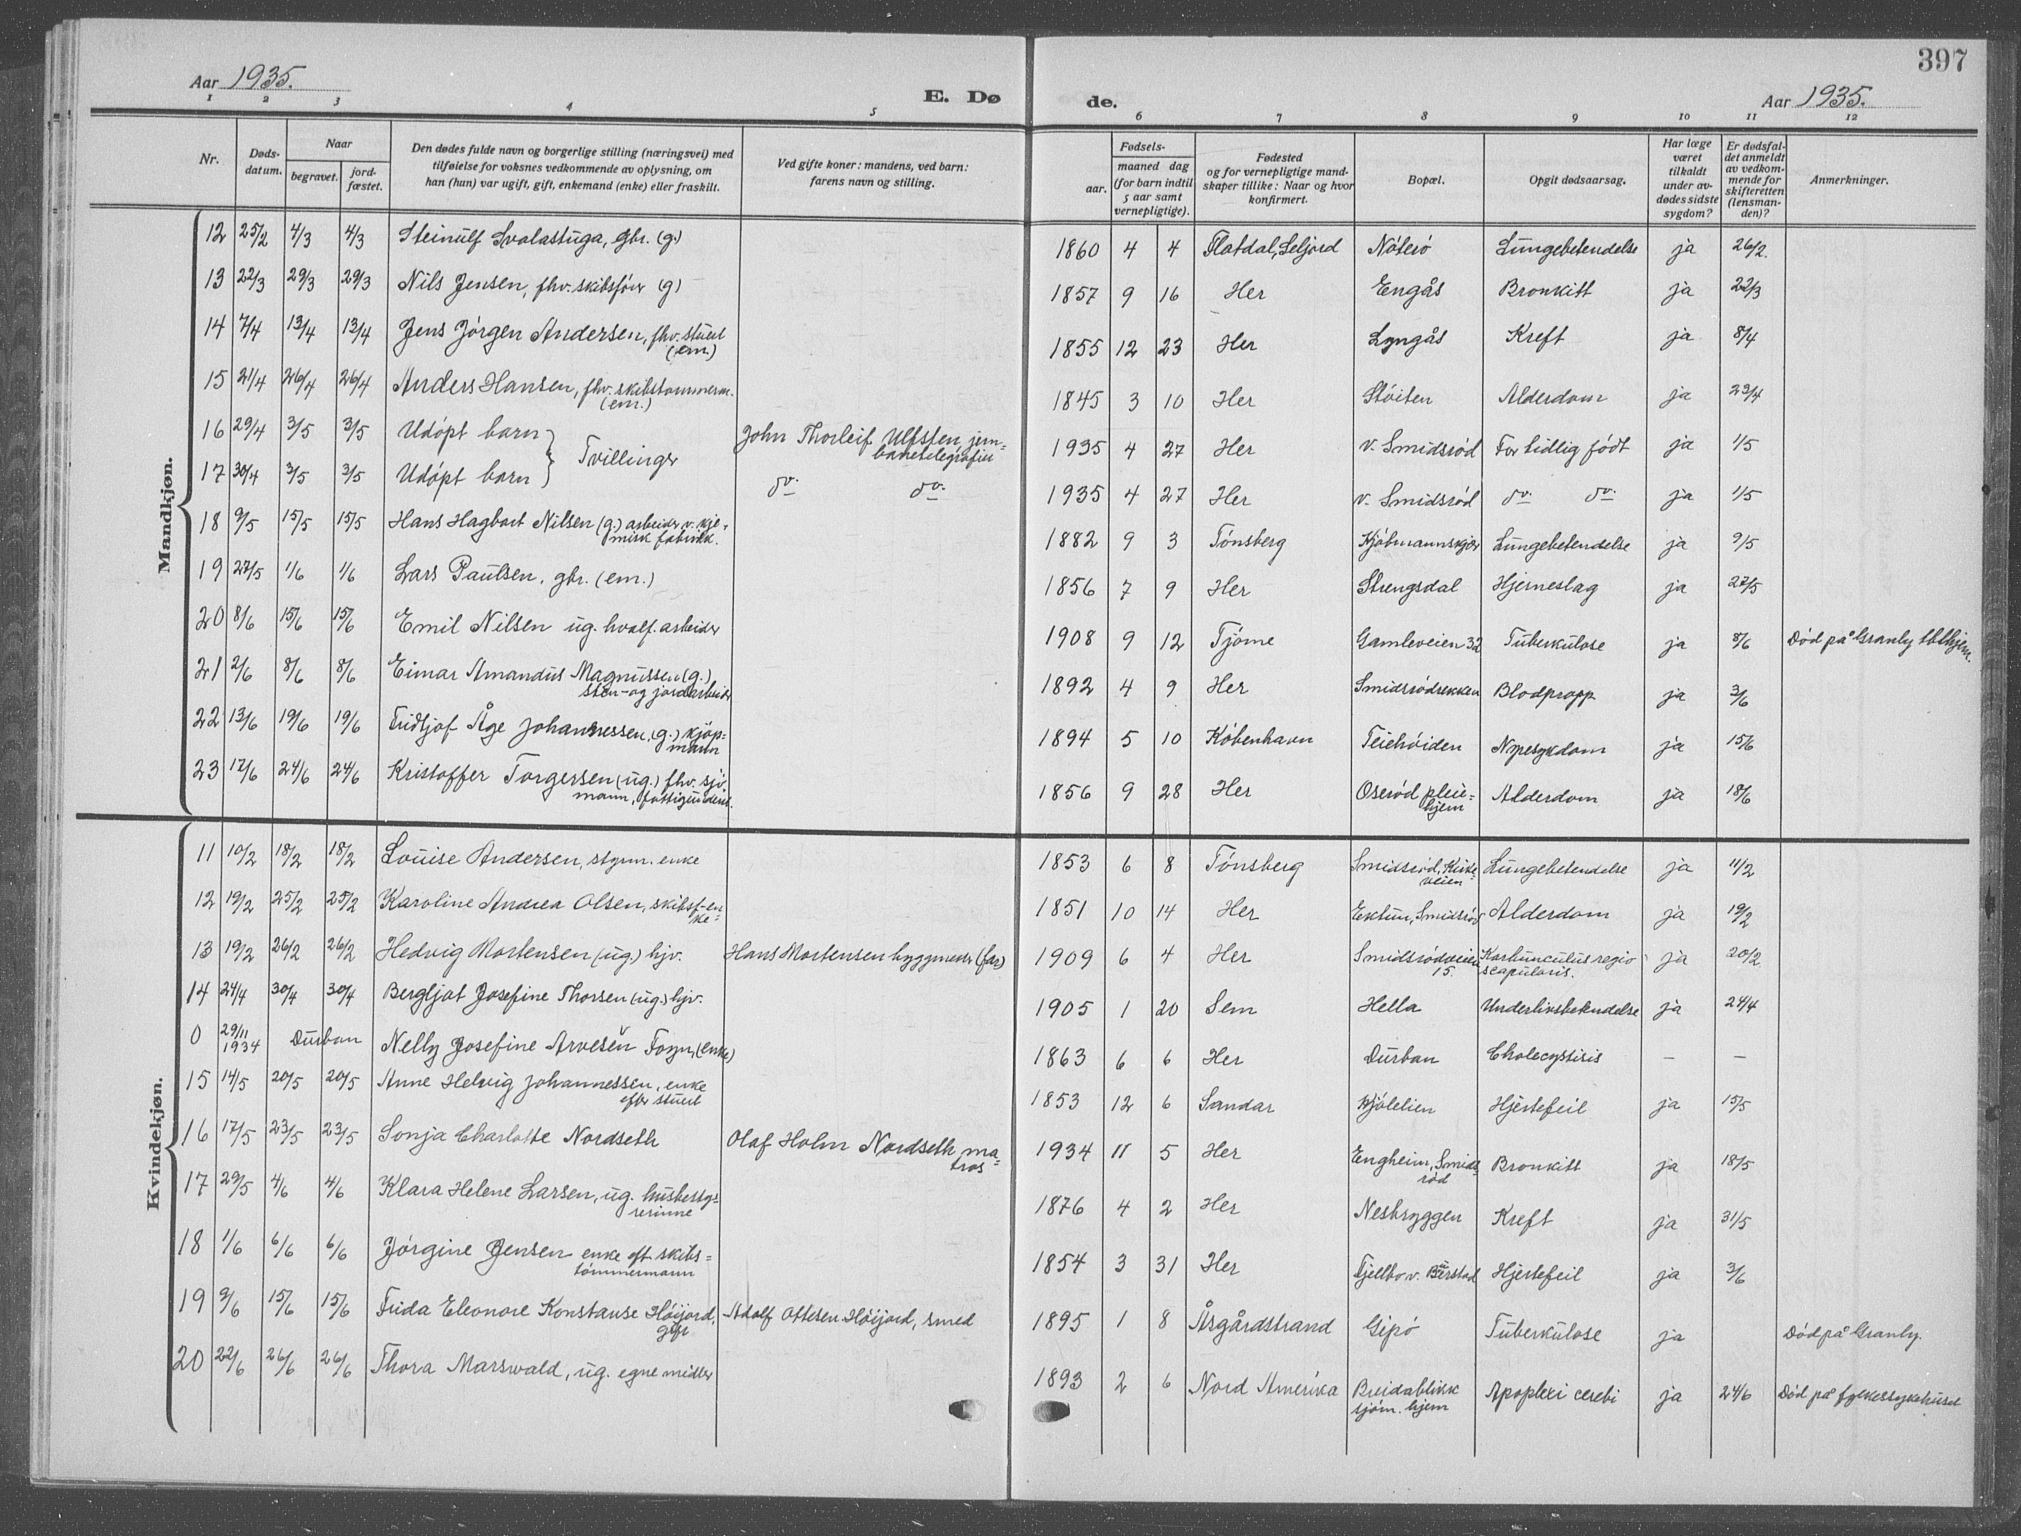 397
Aar 1935.
E. Dø
de.
Aar 1935.
1 2 3 4 5 6 7 8 9 10 11 12
Nr.
Dødsdatum.
Naar
begravet.
jordfæstet.
Den dødes fulde navn og borgerlige stilling (næringsvei) med
tilføielse for voksnes vedkommende av oplysning, om
han (hun) var ugift, gift, enkemand (enke) eller fraskilt.
Ved gifte koner: mandens, ved barn:
farens navn og stilling.
Fødsels-
aar.
maaned dag
(for barn indtil
5 aar samt
vernepligtige).
Fødested
og for vernepligtige mand-
skaper tillike: Naar og hvor
konfirmert.
Bopæl.
Opgit dødsaarsag.
Har læge
været
tilkaldt
under av-
dødes sidste
sygdom?
Er dødsfal-
det anmeldt
av vedkom-
mende for
skifteretten
(lensman-
den)?
Anmerkninger.
Mandkjøn.
12 25/2 4/3 4/3 Steinulf Svalastuga, gbr. (g.) 1860 4 4 Flatdal, Seljord Nøterø Lungebetendelse ja 26/2.
13 22/3 29/3 29/3 Nils Jensen, fhv. skibsfører (g) 1857 9 16 Her Engås Bronkitt ja 22/3
14 7/4 13/4 13/4 Jens Jørgen Andersen, fhv. stuert (em.) 1855 12 23 Her Lyngås Kreft ja 8/4
15 21/4 26/4 26/4 Anders Hansen, fhv. skibstømmerm. (em.) 1845 3 10 Her Støiten Alderdom ja 23/4
16 29/4 3/5 3/5 Udøpt barn } Tvillinger John Thorleif Ulfsten, jern-
banetelegrafist 1935 4 27 Her v. Smidsrød For tidlig født ja 1/5
17 30/4 3/5 3/5 Udøpt barn do. do. 1935 4 27 Her v. Smidsrød do. do. ja 1/5
18 9/5 15/5 15/5 Hans Hagbart Nilsen (g.) arbeider v. kje-
misk fabrikk. 1882 9 3 Tønsberg Kjøbmannskjær Lungebetendelse ja 9/5
19 27/5 1/6 1/6 Lars Paulsen, gbr. (em.) 1856 7 9 Her Strengsdal Hjerneslag ja 27/5
20 8/6 15/6 15/6 Emil Nilsen ug. hvalf. arbeider 1908 9 12 Tjøme Gamleveien 32 Tuberkulose ja 8/6 Død på Granly tblhjem.
21 2/6 8/6 8/6 Eimar Amandus Magnussen (g.)
sten- og jordarbeider 1892 4 9 Her Smidsrødrekken Blodpropp ja 3/6
22 13/6 19/6 19/6 Fridtjof Åge Johannessen, (g.) kjøp-
mann 1894 5 10 København Teiehøiden Nyresykdom ja 15/6
23 17/6 24/6 24/6 Kristoffer Torgersen (ug.) fhv. sjø-
mann, fattigunderst. 1856 9 28 Her Oserød pleie-
hjem Alderdom ja 18/6
Kvindekjøn.
11 10/2 18/2 18/2 Louise Andersen, styrm. enke 1853 6 8 Tønsberg Smidsrød, Kirke-
veien Lungebetendelse ja 11/2
12 19/2 25/2 25/2 Karoline Andrea Olsen, skibsf-en-
ke 1851 10 14 Her Ektun, Smidsrød Alderdom ja 19/2
13 19/2 26/2 26/2 Hedvig Mortensen (ug.) hjv. Hans Mortensen byggmester (far) 1909 6 4 Her Smidsrødveien
15. Karbunculus regio
scapularis. ja 20/2
14 24/4 30/4 30/4 Bergljot Josefine Thorsen (ug.) hjv. 1905 1 20 Sem Hella Underlivsbetendelse ja 24/4
0 29/11
1934 Durban Nelly Josefine Arvesen Foyn, (enke) 1863 6 6 Her Durban Cholecystisis – –
15 14/5 20/5 20/5 Anne Helvig Johannessen, enke
efter stuert 1853 12 6 Sandar Kjølelien Hjertefeil ja 15/5
16 17/5 23/5 23/5 Sonja Charlotte Nordseth Olaf Holm Nordseth, ma-
tros 1934 11 5 Her Engheim, Smids-
rød Bronkitt ja 18/5
17 29/5 4/6 4/6 Klara Helene Larsen, ug. husbesty-
rerinne 1876 4 2 Her Nesbryggen Kreft ja 31/5
18 1/6 6/6 6/6 Jørgine Jensen enke eft. skibs-
tømmermann 1854 3 31 Her Fjellbo v. Bærstad Hjertefeil ja 3/6
19 9/6 15/6 15/6 Frida Eleonore Konstanse Høijord,
gift Adolf Ottesen Høijord, smed 1895 1 8 Åsgårdstrand Gipø Tuberkulose ja Død på Granly.
20 22/6 26/6 26/6 Thora Marswald, ug. egne midler 1893 2 6 Nord Amerika Breidablikk
sjøm. hjem Apoplexi cerebi ja 24/6 Død på fylkessykehuset